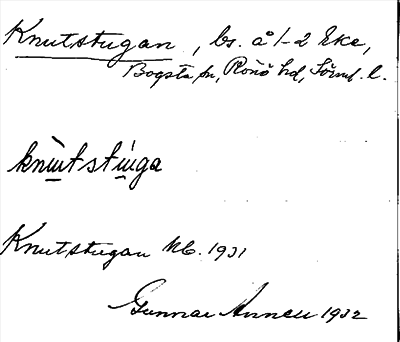 Knutstugan, bs. å 1-2 Eke,
Bogsta sn, Rönö hd, Sörml. l.
knutstuga
Knutstugan kb. 1931
Gunnar 1932